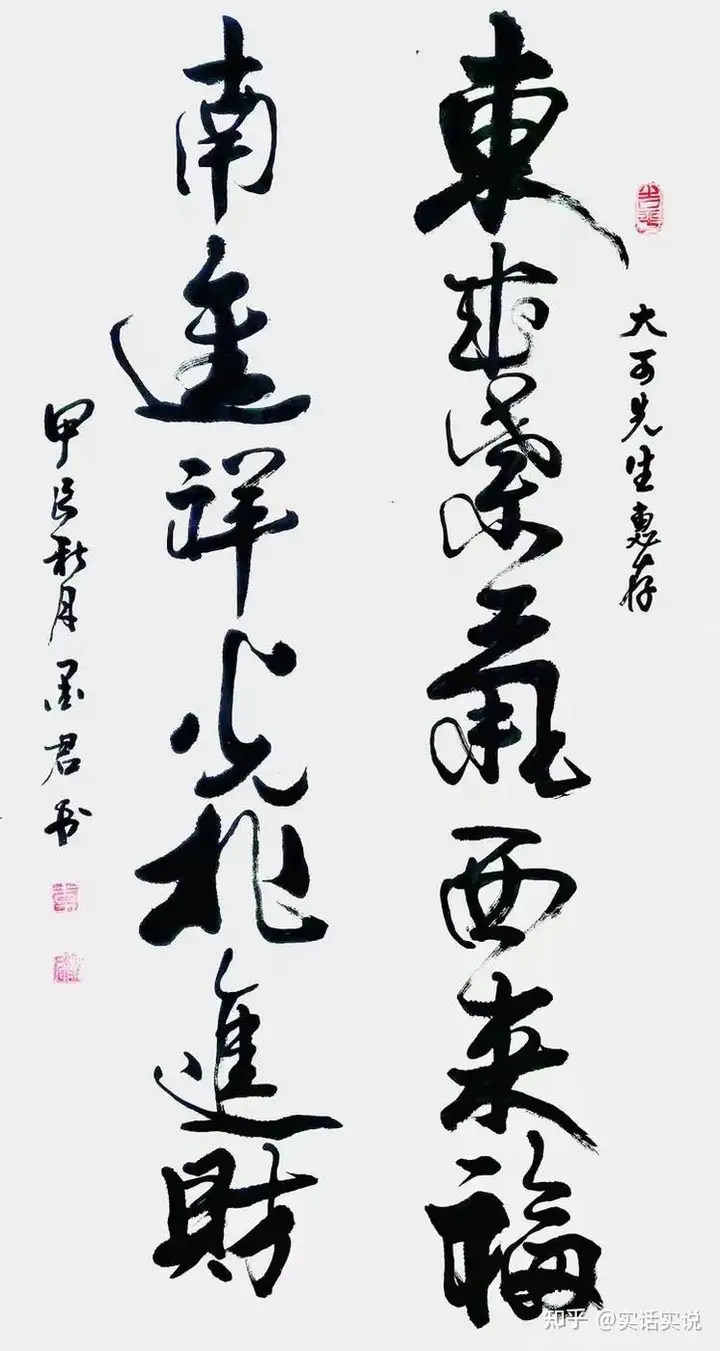 大可先生惠存
東來紫氣西来福
南進祥光北進財
甲辰秋月墨君书
知乎 @实话实说